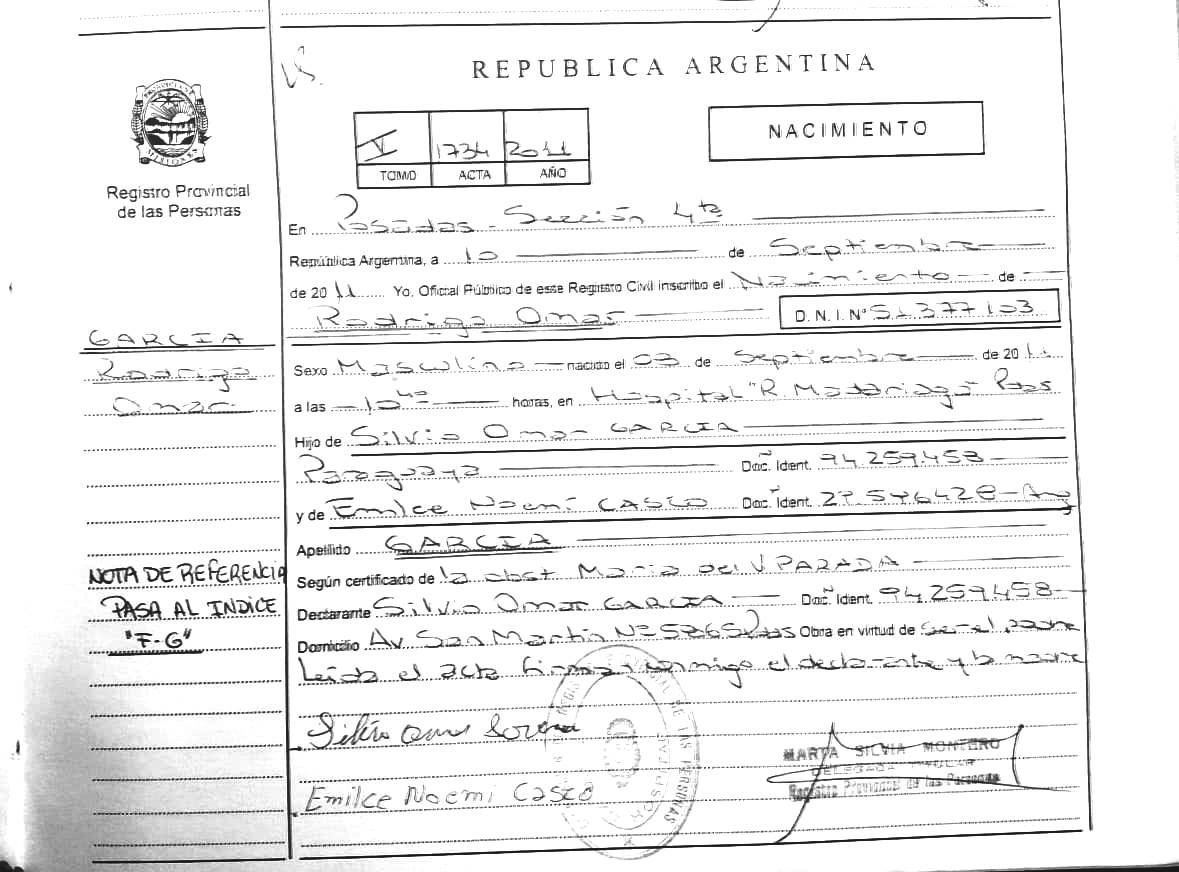 REPUBLICA ARGENTINA
PROVINCIA DE MISIONES
Registro Provincial
de las Personas
V 1734 2011
TOMO ACTA AÑO
NACIMIENTO
En Posadas - Sección 4ta
República Argentina, a 10 de Septiembre
de 2011 Yo, Oficial Público de este Registro Civil inscribo el Nacimiento de
Rodrigo Omar D.N.I. Nº 51.377.103
GARCIA
Rodrigo
Omar
Sexo Masculino nacido el 03 de Septiembre de 2011
a las 10 40 horas, en Hospital "R. Madariaga" Pdas
Hijo de Silvio Omar GARCIA
Paraguaya Doc. Ident. 94.259.458
y de Emilce Noemi CASCO Doc. Ident. 27.546.428 - Arg
Apellido GARCIA
NOTA DE REFERENCIA
PASA AL INDICE
"F-G"
Según certificado de la obst Maria del V PARADA
Declarante Silvio Omar GARCIA Doc. Ident. 94.259.458
Domicilio Av. San Martin Nº 5865 Pdas Obra en virtud de ser el padre
Leida el acta firman conmigo el declarante y la madre
Silvio Omar
Emilce Noemi Casco
MARTA SILVIA MONTERO
DELEGADA TITULAR
Registro Provincial de las Personas
DE LAS PERSONAS